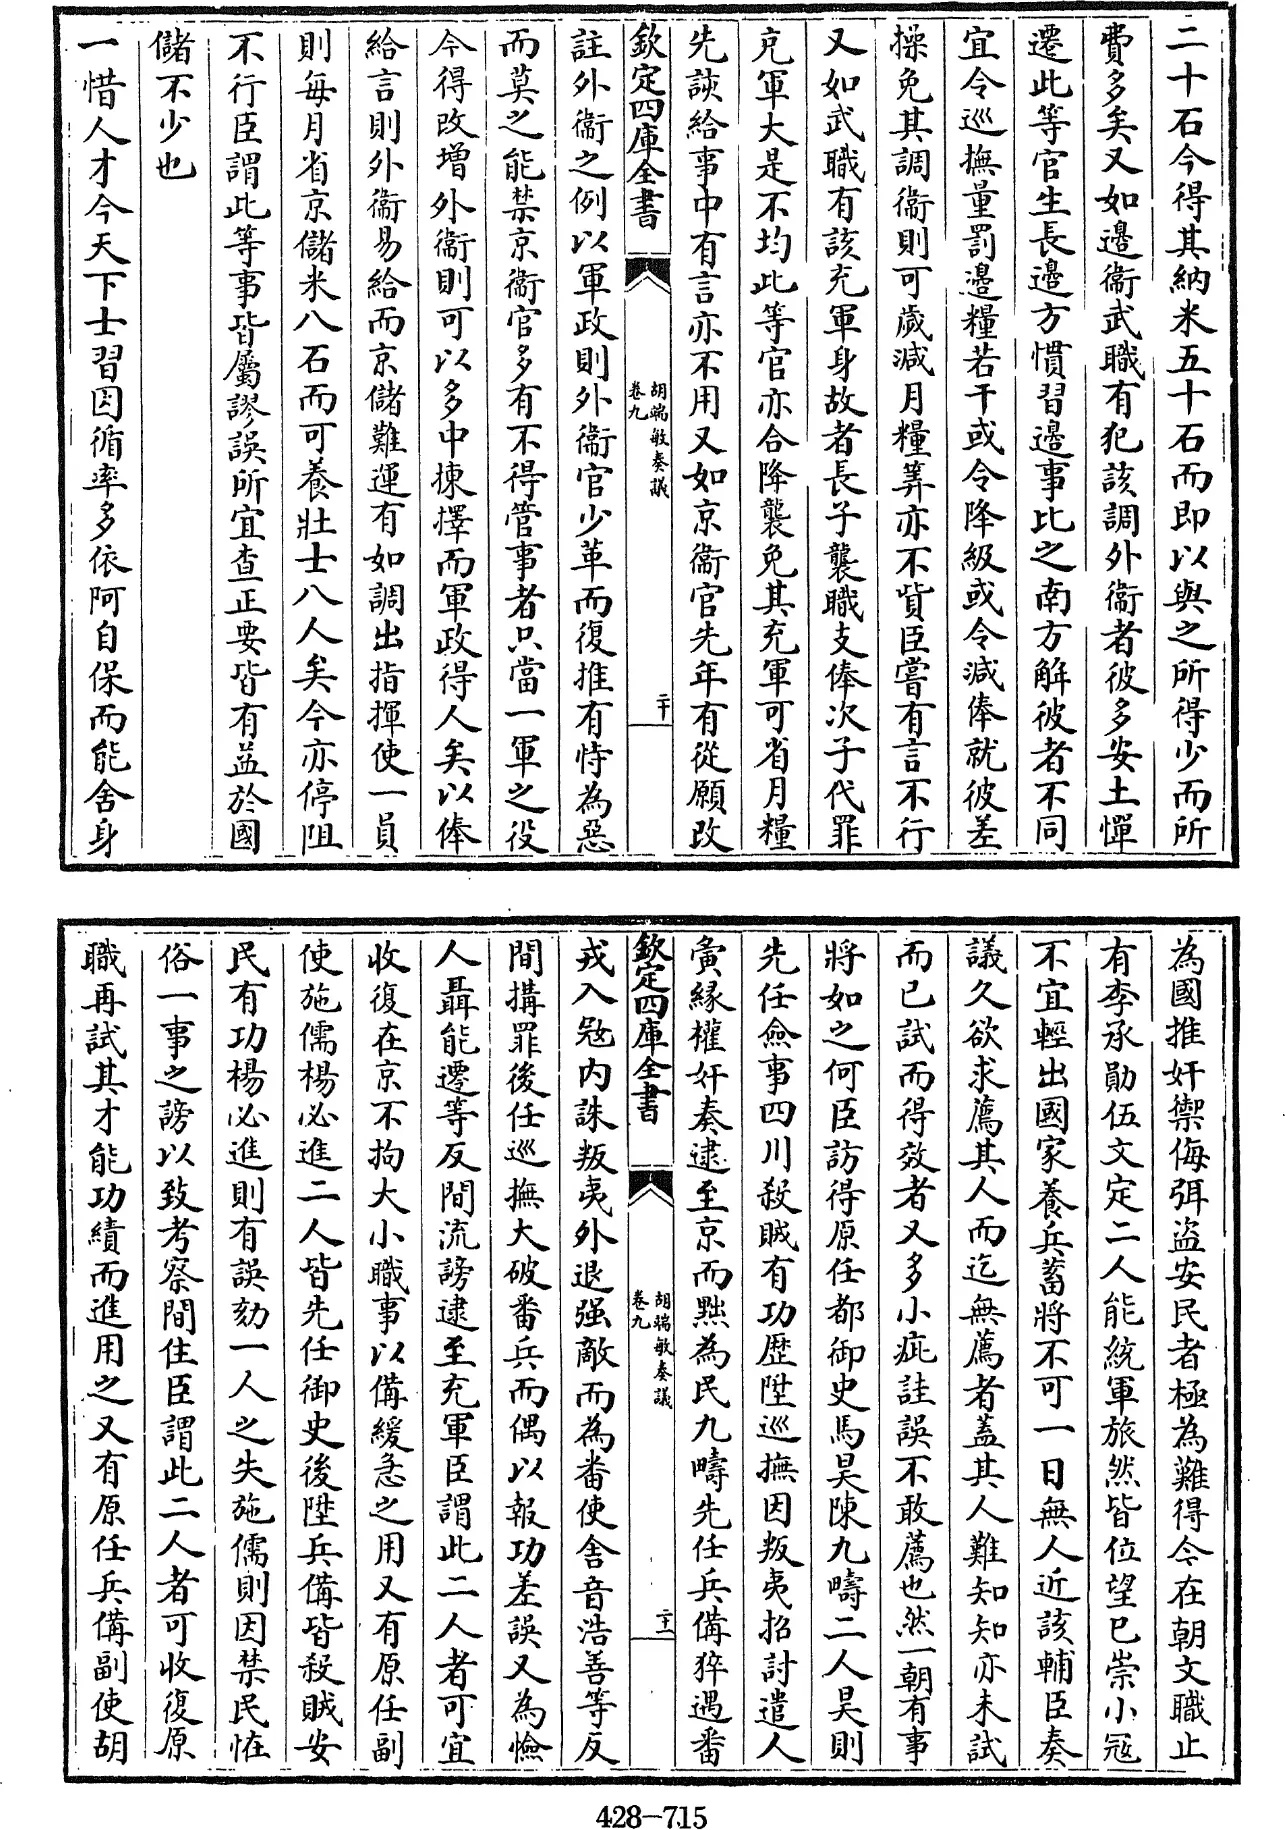 二十石今得其納米五十石而即以與之所得少而所
費多矣又如邊衞武職有犯該調外衞者彼多安土憚
遷此等官生長邊方慣習邊事比之南方解彼者不同
宜令巡撫量罰邊糧若干或令降級或令減俸就彼差
操免其調衞則可歲減月糧筭亦不貲臣嘗有言不行
又如武職有該充軍身故者長子襲職支俸次子代罪
充軍大是不均此等官亦合降襲免其充軍可省月糧
先該給事中有言亦不用又如京衞官先年有從願改
欽定四庫全書
胡端敏奏議
卷九
二十
註外衞之例以軍政則外衞官少革而復推有恃為惡
而莫之能禁京衞官多有不得管事者只當一軍之役
今得改增外衞則可以多中揀擇而軍政得人矣以俸
給言則外衞易給而京儲難運有如調出指揮使一員
則每月省京儲米八石而可養壯士八人矣今亦停阻
不行臣謂此等事皆屬謬誤所宜查正要皆有益於國
儲不少也
一惜人才今天下士習因循率多依阿自保而能舍身
為國推奸禦侮弭盜安民者極為難得今在朝文職止
有李承勛伍文定二人能統軍旅然皆位望已崇小冦
不宜輕出國家養兵蓄將不可一日無人近該輔臣奏
議久欲求薦其人而迄無薦者蓋其人難知知亦未試
而已試而得效者又多小疵詿誤不敢薦也然一朝有事
將如之何臣訪得原任都御史馬昊陳九疇二人昊則
先任僉事四川殺賊有功歷陞巡撫因叛夷招討遣人
夤緣權奸奏逮至京而黜為民九疇先任兵備猝遇番
欽定四庫全書
胡端敏奏議
卷九
二十一
戎入冦内誅叛夷外退强敵而為番使舍音浩善等反
間搆罪後任巡撫大破番兵而偶以報功差誤又為憸
人聶能遷等反間流謗逮至充軍臣謂此二人者可宜
收復在京不拘大小職事以備緩急之用又有原任副
使施儒楊必進二人皆先任御史後陞兵備皆殺賊安
民有功楊必進則有誤劾一人之失施儒則因禁民恠
俗一事之謗以致考察間住臣謂此二人者可收復原
職再試其才能功績而進用之又有原任兵備副使胡
428-715